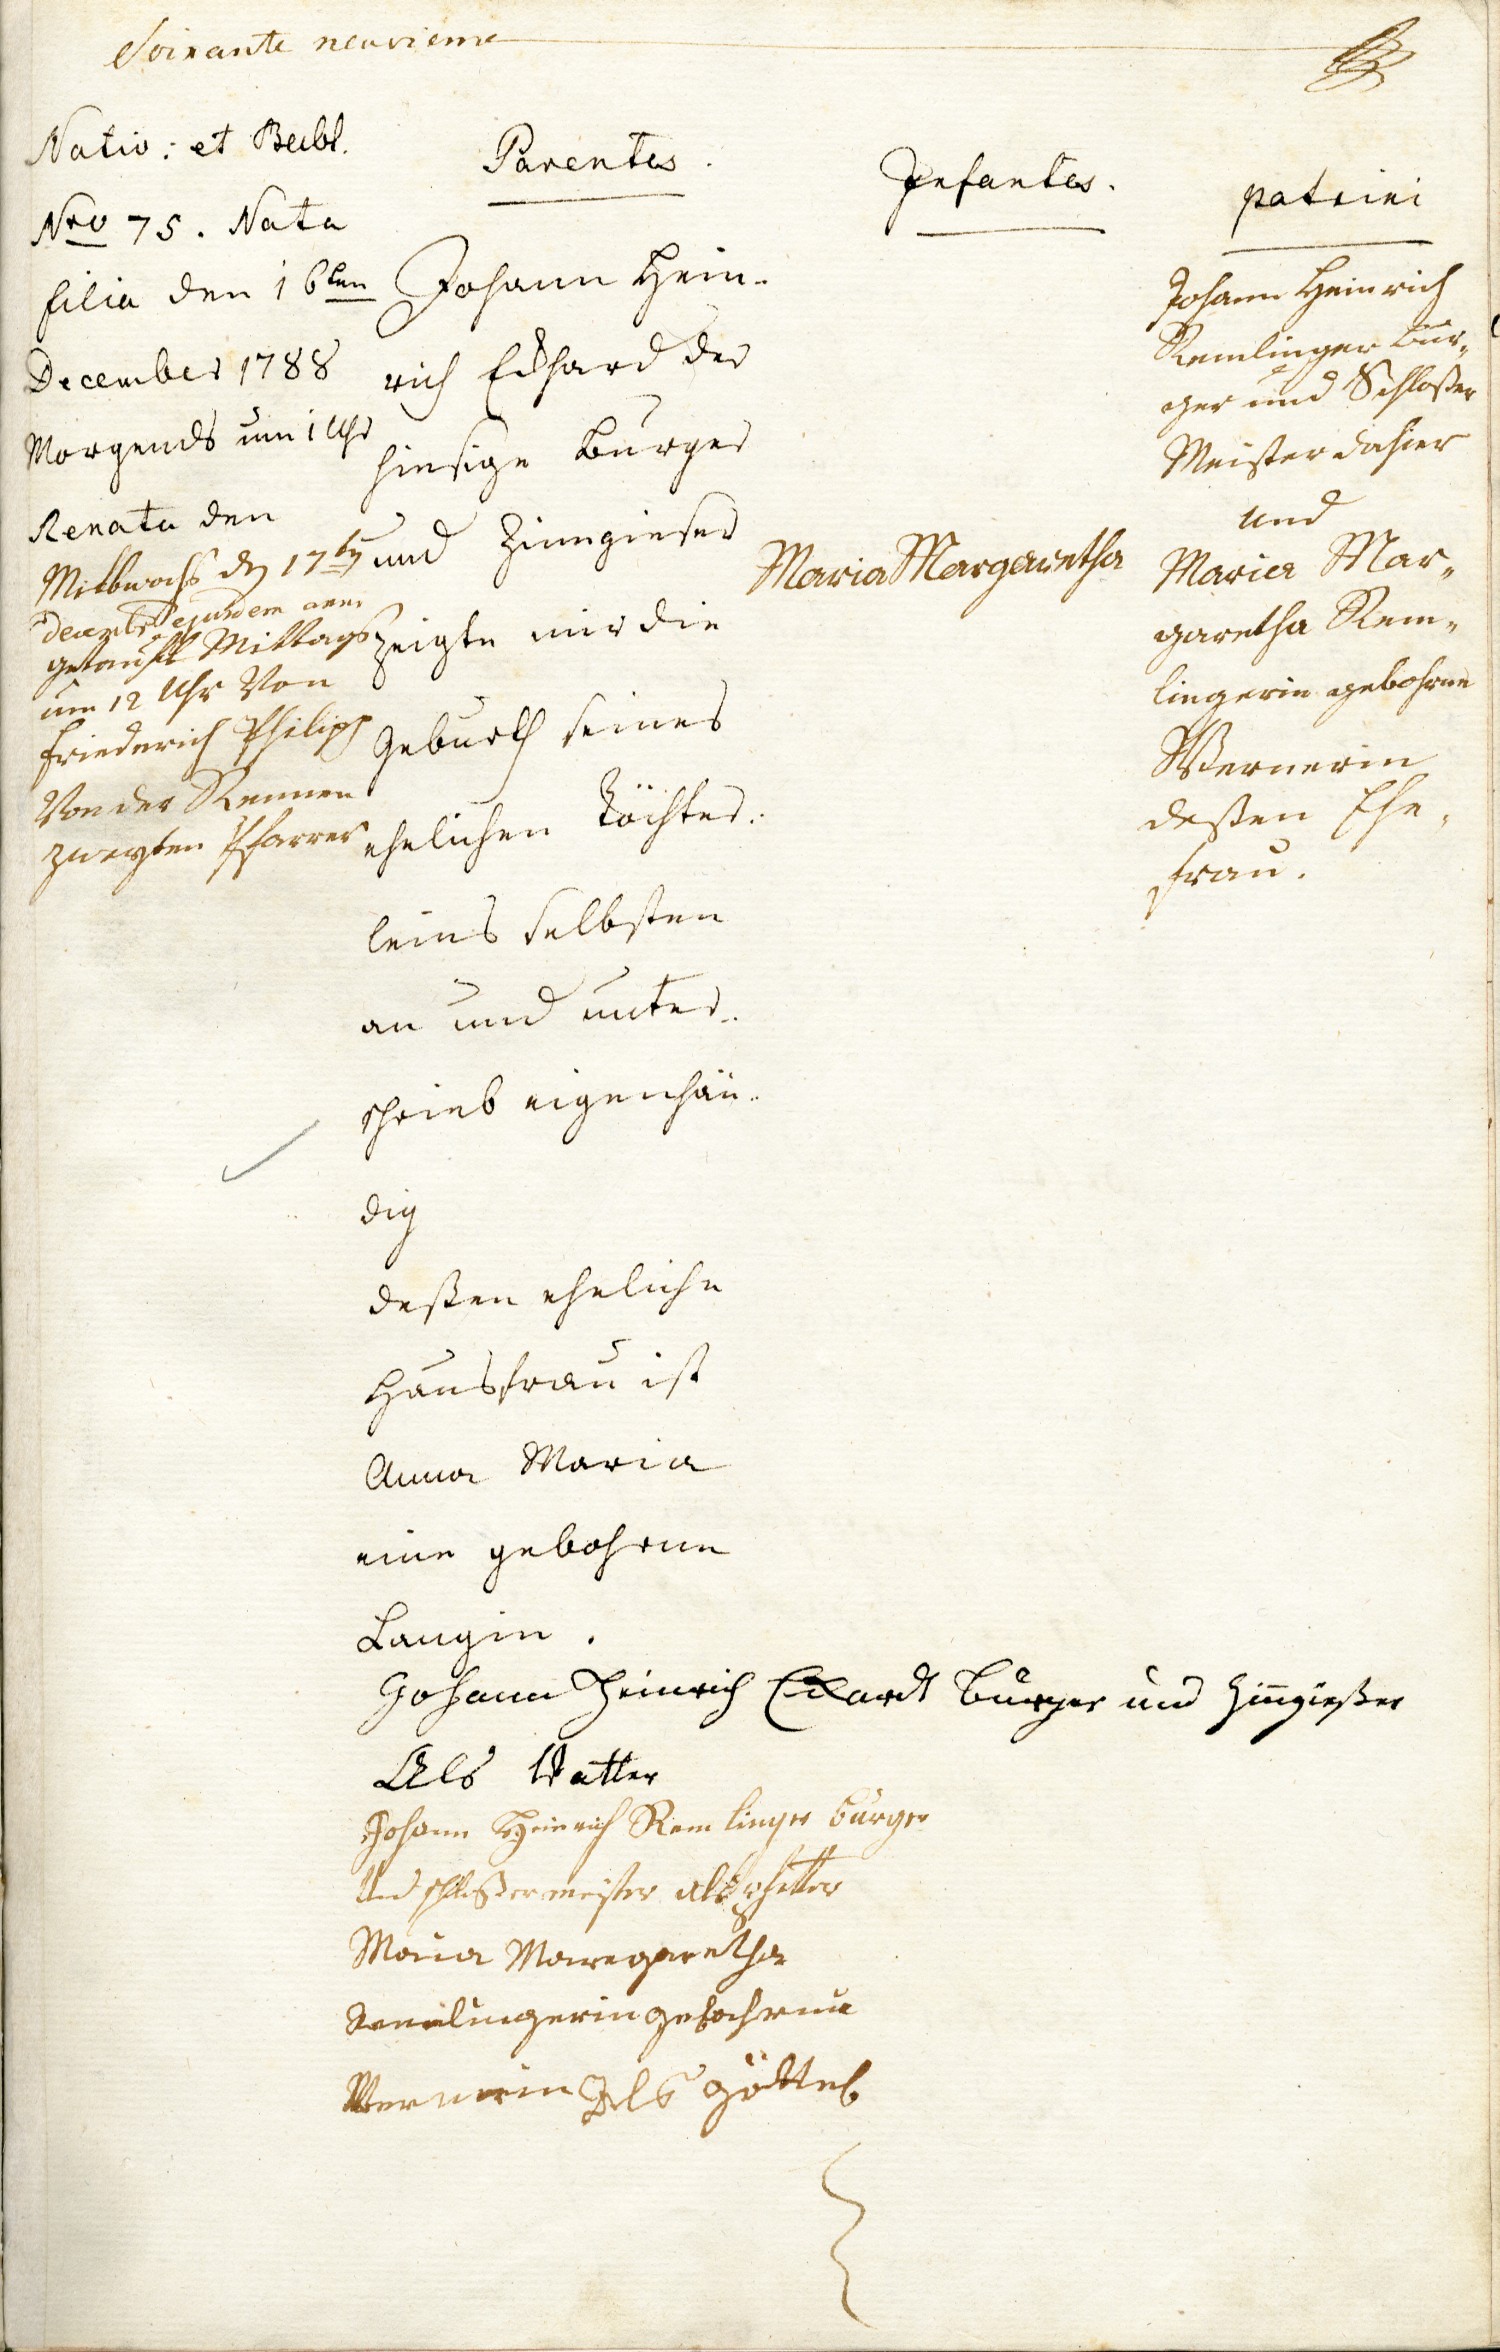 Soixante neuvieme
Nativ: et Bebt.
Nro 75. Nata
filia den 16ten
December 1788
Morgends um 1 Uhr
Renata den
Mittwochs dn 17ten
decembr. ejusdem anni
getauft Mittags
um 12 Uhr Von
Friederich Philipp
Von der Rennen
zweyten Pfarrer
Parentes.
Johann Hein-
rich Eckhard der
hiesige Burger
und Zinngieser
zeigte mir die
Geburth seines
ehelichen Töchter-
leins selbsten
an und unter-
schrieb eigenhän-
dig
deßen eheliche
Hausfrau ist
Anna Maria
eine gebohrne
Langin.
Infantes.
Maria Margaretha
patrini
Johann Heinrich
Remlinger bur-
ger und Schloßer
Meister dahier
und
Maria Mar-
garetha Rem-
lingerin gebohrne
Wernerin
deßen Ehe-
frau.
Johann Heinrich Eckardt Burger und Zinngießer
Als Vatter
Johann Heinrich Remlinger burger
Und schloßermeister als
Maria Maregaretha
Remlingerin gebohrne
Wernerin Als göttel